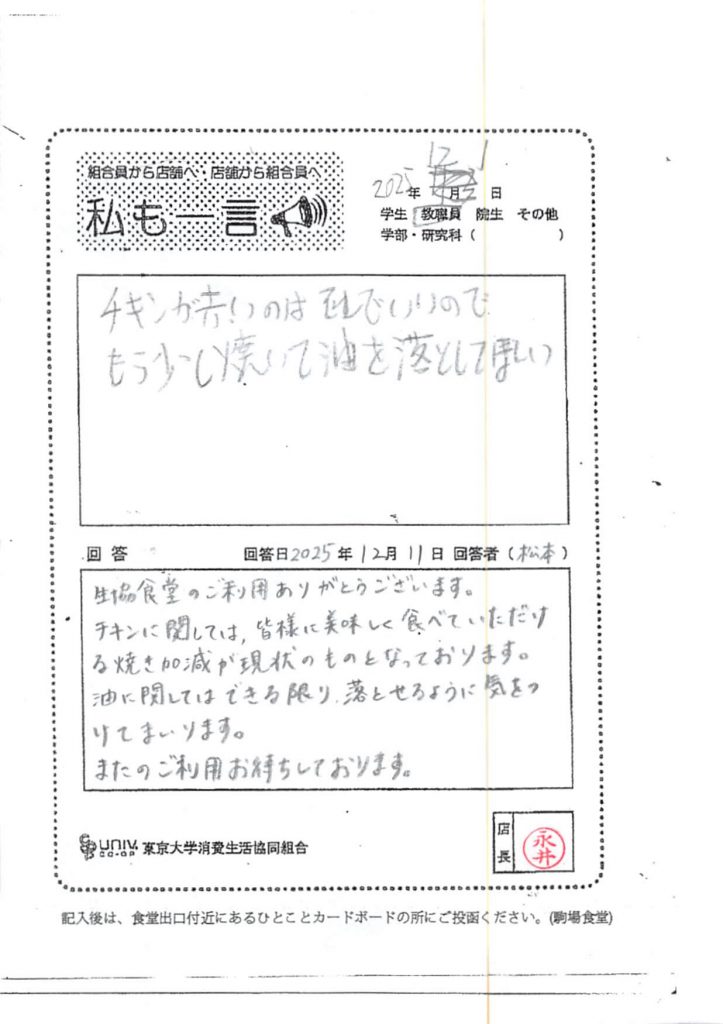 組合員から店舗へ・店舗から組合員へ
私も一言
2025年 12月 1日
学生 教職員 院生 その他
学部・研究科（　　　）
チキンが赤いのは
もう少し焼いて油を落としてほしい
回答 回答日2025年12月11日 回答者（松本）
生協食堂のご利用ありがとうございます。
チキンに関しては、皆様に美味しく食べていただけ
る焼き加減が現状のものとなっております。
油に関してはできる限り、落とせるように気をつ
けてまいります。
またのご利用お待ちしております。
UNIV. CO-OP 東京大学消費生活協同組合
店長 永井
記入後は、食堂出口付近にあるひとことカードボードの所にご投函ください。(駒場食堂)